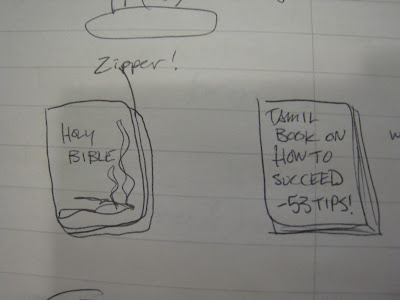 Zipper!
Holy
BIBLE
TAMIL
BOOK ON
HOW TO
SUCCEED
-53 TIPS!